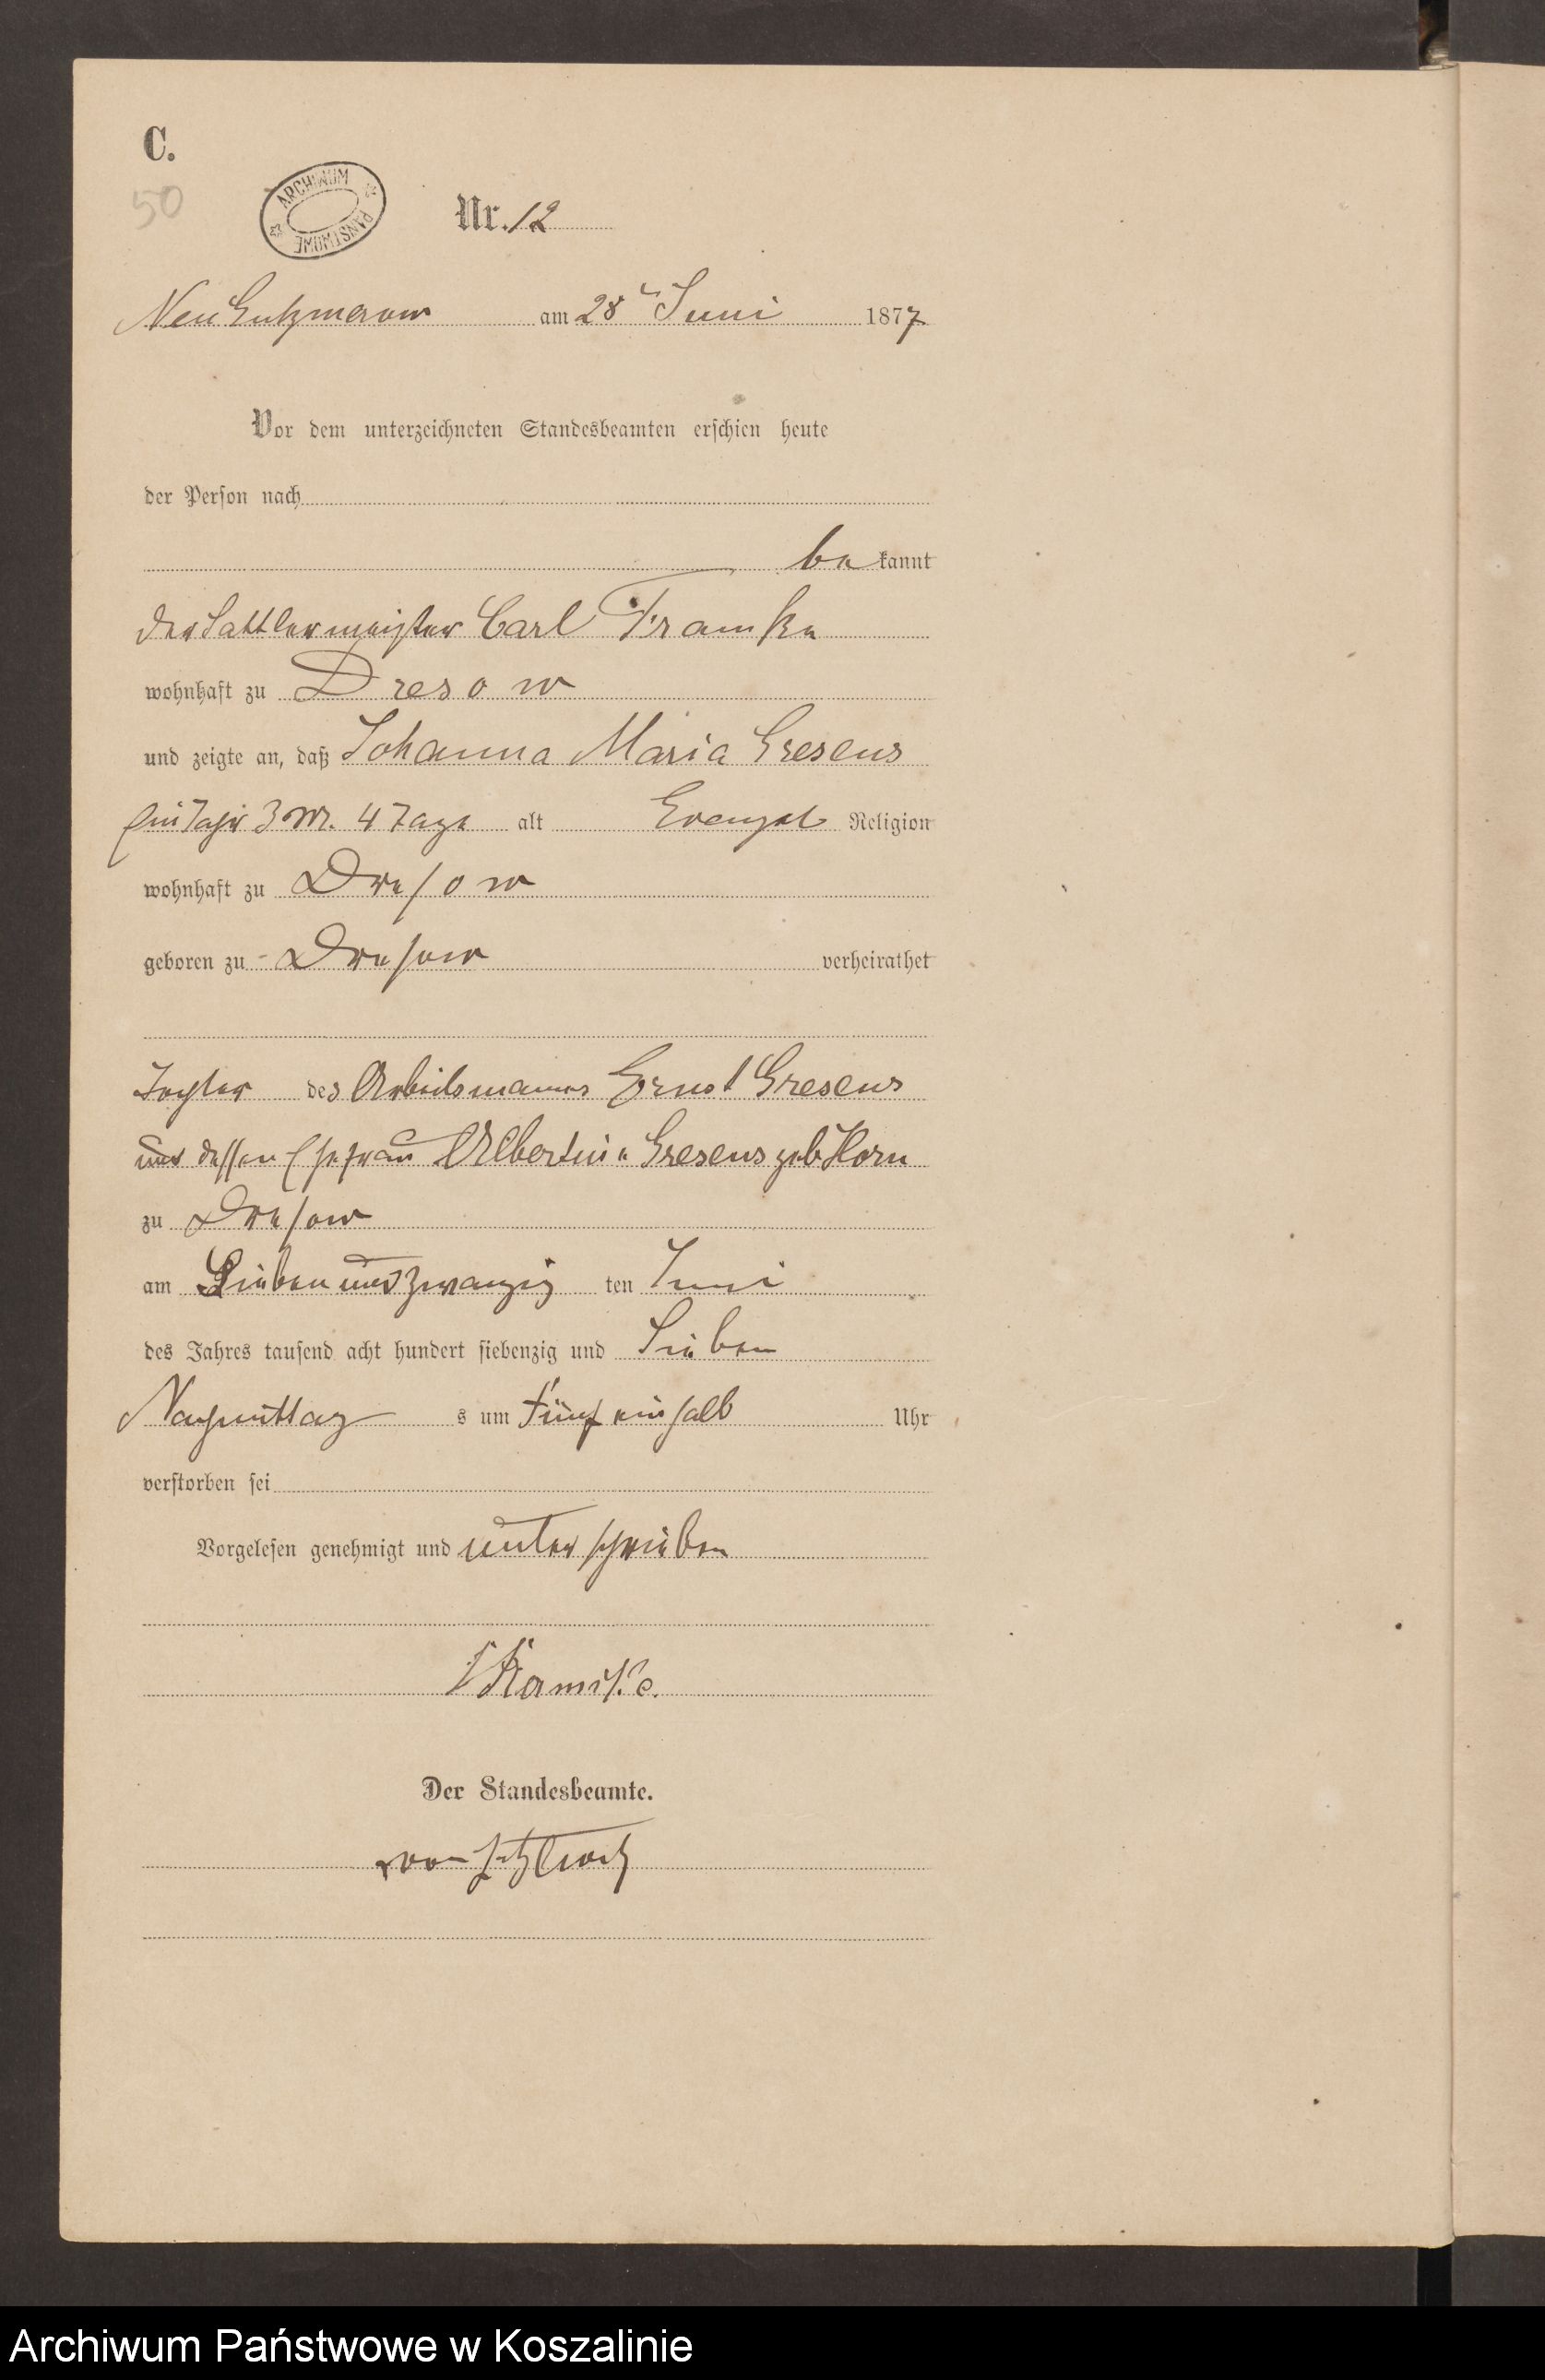 C.
50
ARCHIWUM PAŃSTWOWE
Nr. 12
Neu Gutzmerow am 28t Juni 1877
Vor dem unterzeichneten Standesbeamten erschien heute
der Person nach
be kannt
der Sattlermeister Carl Framke
wohnhaft zu Dresow
und zeigte an, daß Johanna Maria Gresens
Ein Jahr 3 M. 4 Tage alt Evangel Religion
wohnhaft zu Dresow
geboren zu Dresow verheirathet
Tochter des Arbeitsmannes Ernst Gresens
und dessen Ehefrau Albertine Gresens geb Horn
zu Dresow
am Sieben und zwanzig ten Juni
des Jahres tausend acht hundert siebenzig und Sieben
Nachmittag s um Fünf ein halb Uhr
verstorben sei
Vorgelesen genehmigt und unterschrieben
Der Standesbeamte.
von
Archiwum Państwowe w Koszalinie